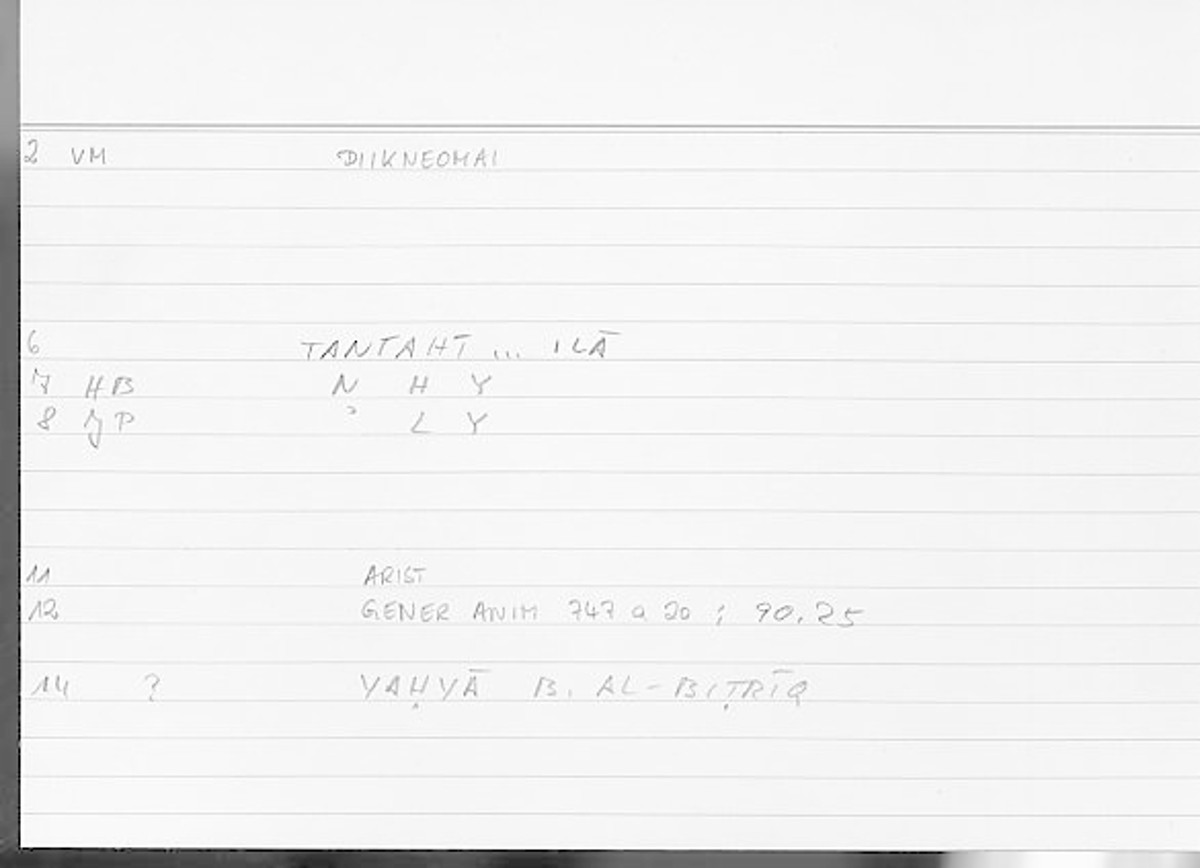 2 VM DIIKNEOMAI
6 TANTAHĪ ... ILĀ
7 HB N H Y
8 JP ʾ L Y
11 ARIST
12 GENER ANIM 747 a 20 ; 90.25
14 ? YAḤYĀ B. AL-BIṬRĪQ